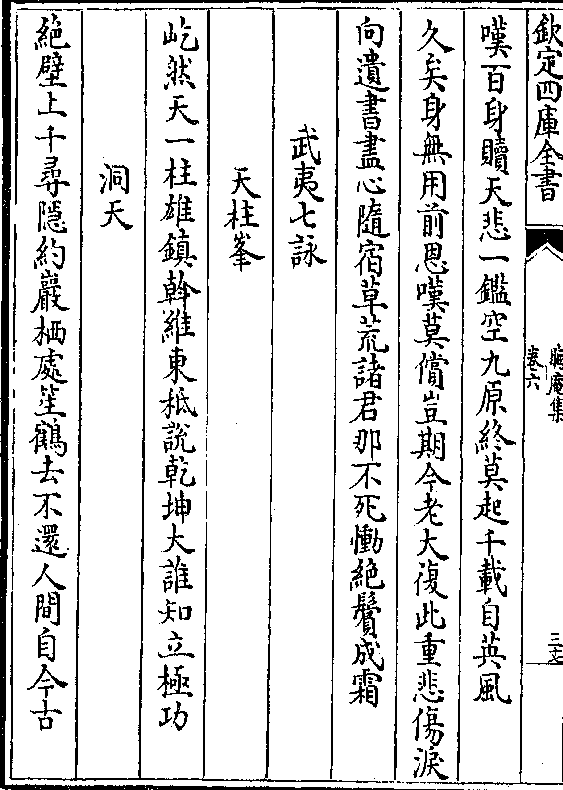 欽定四庫全書
晦庵集
卷六
嘆百身贖天悲一鑑空九原終莫起千載自英風
久矣身無用前恩嘆莫償豈期今老大復此重悲傷淚
向遺書盡心隨宿草荒諸君那不死慟絕鬢成霜
武夷七詠
天柱峯
屹然天一柱雄鎮斡維東秪說乾坤大誰知立極功
洞天
絕壁上千尋隱約巖栖處笙鶴去不還人間自今古